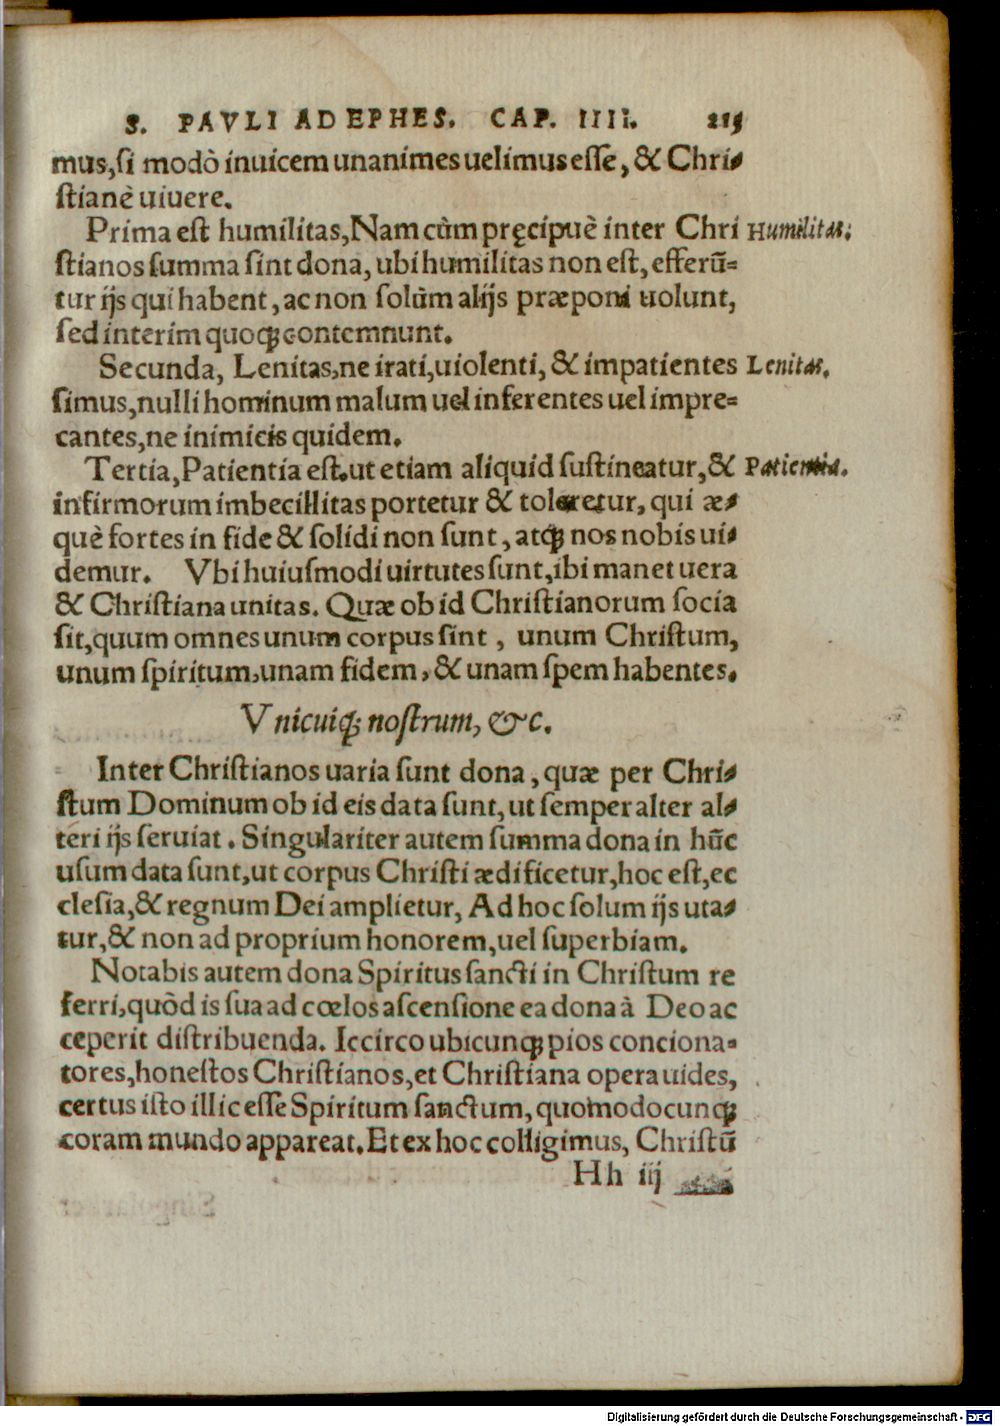 S. PAVLI AD EPHES. CAP. IIII.
mus, si modò inuicem unanimes uelimus esse, & Chri-
stianè uiuere.
Prima est humilitas, Nam cùm pręcipuè inter Chri Humilitas.
stianos summa sint dona, ubi humilitas non est, efferũ=
tur ijs qui habent, ac non solùm alijs præponi uolunt,
sed interim quoq; contemnunt.
Secunda, Lenitas, ne irati, uiolenti, & impatientes Lenitas.
simus, nulli hominum malum uel inferentes uel impre=
cantes, ne inimicis quidem.
Tertia, Patientia est, ut etiam aliquid sustineatur, & Patientia.
infirmorum imbecillitas portetur & toleretur, qui æ-
què fortes in fide & solidi non sunt, atq; nos nobis ui-
demur. Vbi huiusmodi uirtutes sunt, ibi manet uera
& Christiana unitas. Quæ ob id Christianorum socia
sit, quum omnes unum corpus sint, unum Christum,
unum spiritum, unam fidem, & unam spem habentes.
Vnicuiq; nostrum, &c.
Inter Christianos uaria sunt dona, quæ per Chri-
stum Dominum ob id eis data sunt, ut semper alter al-
teri ijs seruiat. Singulariter autem summa dona in hũc
usum data sunt, ut corpus Christi ædificetur, hoc est, ec
clesia, & regnum Dei amplietur, Ad hoc solum ijs uta-
tur, & non ad proprium honorem, uel superbiam.
Notabis autem dona Spiritus sancti in Christum re
ferri, quòd is sua ad cœlos ascensione ea dona à Deo ac
ceperit distribuenda. Iccirco ubicunq; pios conciona=
tores, honestos Christianos, et Christiana opera uides,
certus isto illic esse Spiritum sanctum, quomodocunq;
coram mundo appareat. Et ex hoc colligimus, Christũ
Hh iij
Digitalisierung gefördert durch die Deutsche Forschungsgemeinschaft - DFG